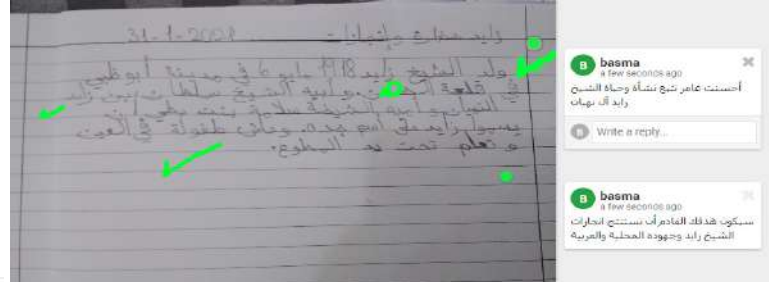 زايد صفات وإنجازات 31-1-2021
ولد الشيخ زايد 1918 مايو 6 في مدينة أبوظبي
في قلعة الحصن وابيه الشيخ سلطان بن زايد
النهيان وأمه الشيخة سلامة بنت بطي
زايد على اسم جده. وعاش طفولة في العين
و تعلم تحت يد المطوع.
basma
a few seconds ago
أحسنت عامر تتبع نشأة وحياة الشيخ
زايد آل نهيان
Write a reply...
basma
a few seconds ago
سيكون هدفك القادم أن تستنتج انجازات
الشيخ زايد وجهوده المحلية والعربية